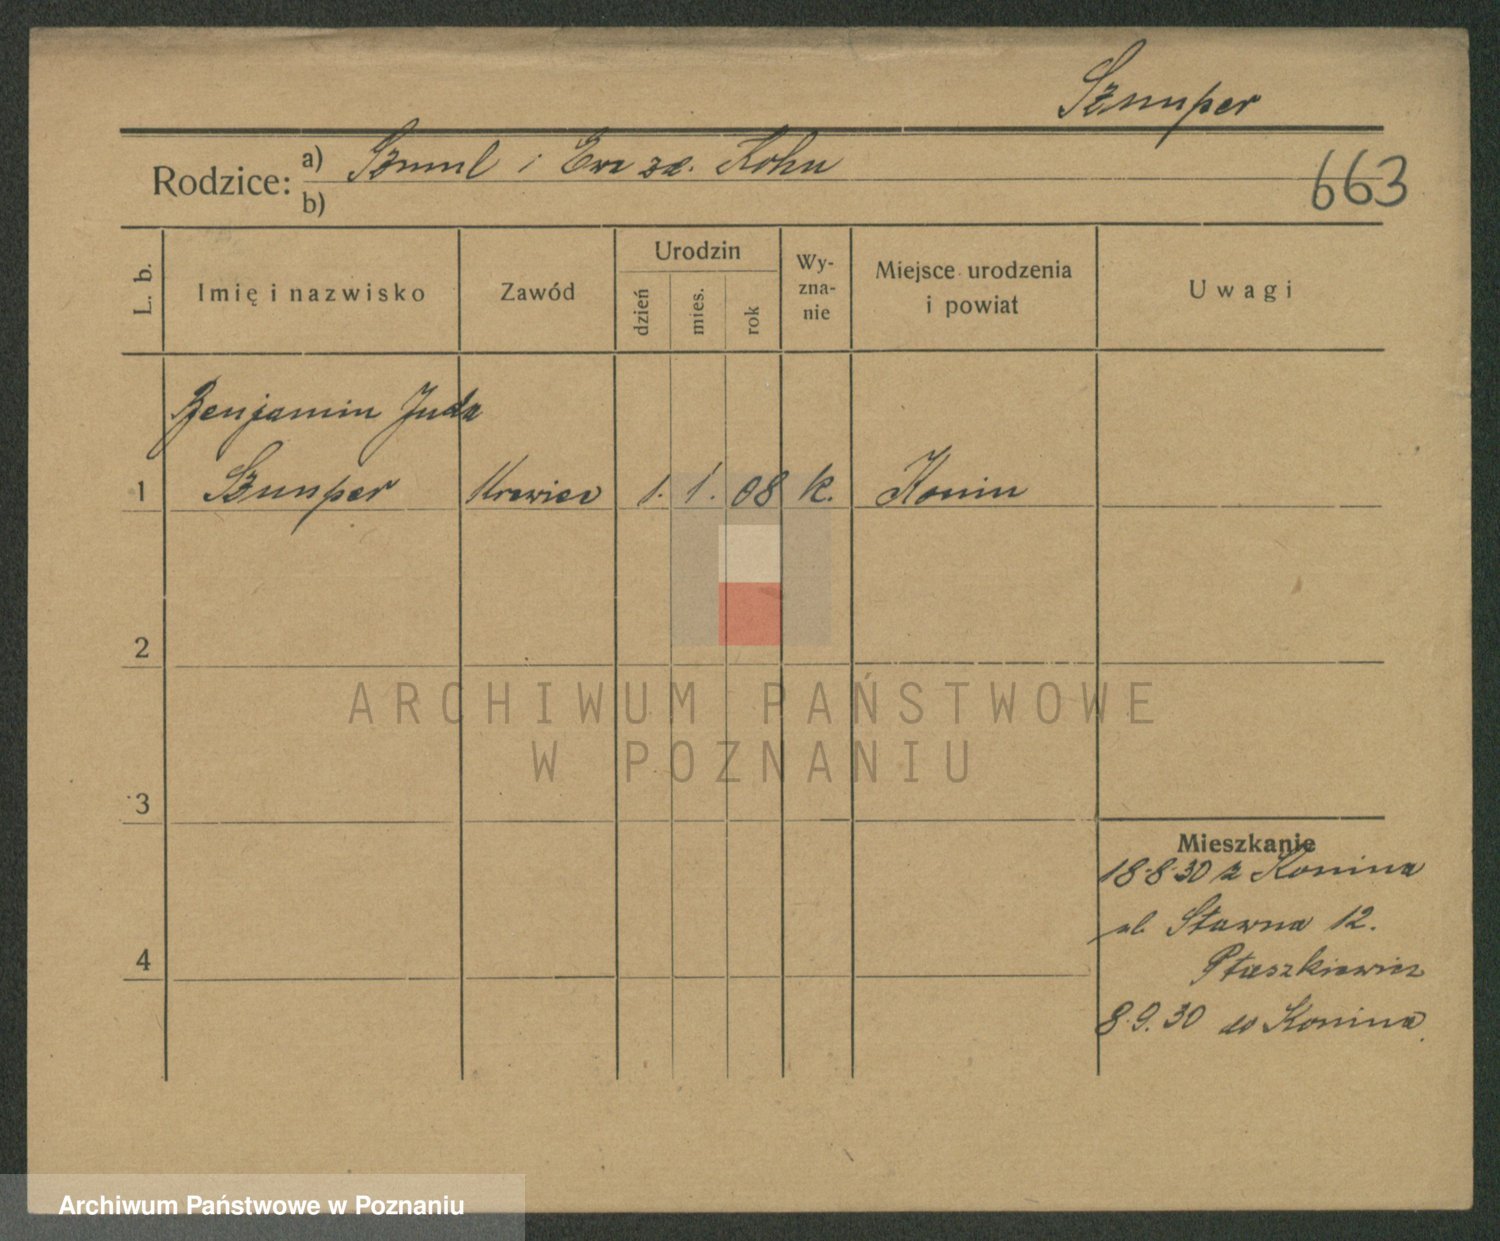 Sznuper
Rodzice: a) Szmul i Ewa zd. Kohn
b)
663
L. b.
Imię i nazwisko
Zawód
Urodzin
dzień
mies.
rok
Wy-
zna-
nie
Miejsce urodzenia
i powiat
Uwagi
Benjamin Juda
1 Sznuper Krawiec 1. 1. 08 K. Konin
2
3
4
Mieszkanie
18.8.30 z Konina
ul. Stawna 12.
Ptaszkiewicz
8.9.30 do Konina
ARCHIWUM PAŃSTWOWE
W POZNANIU
Archiwum Państwowe w Poznaniu